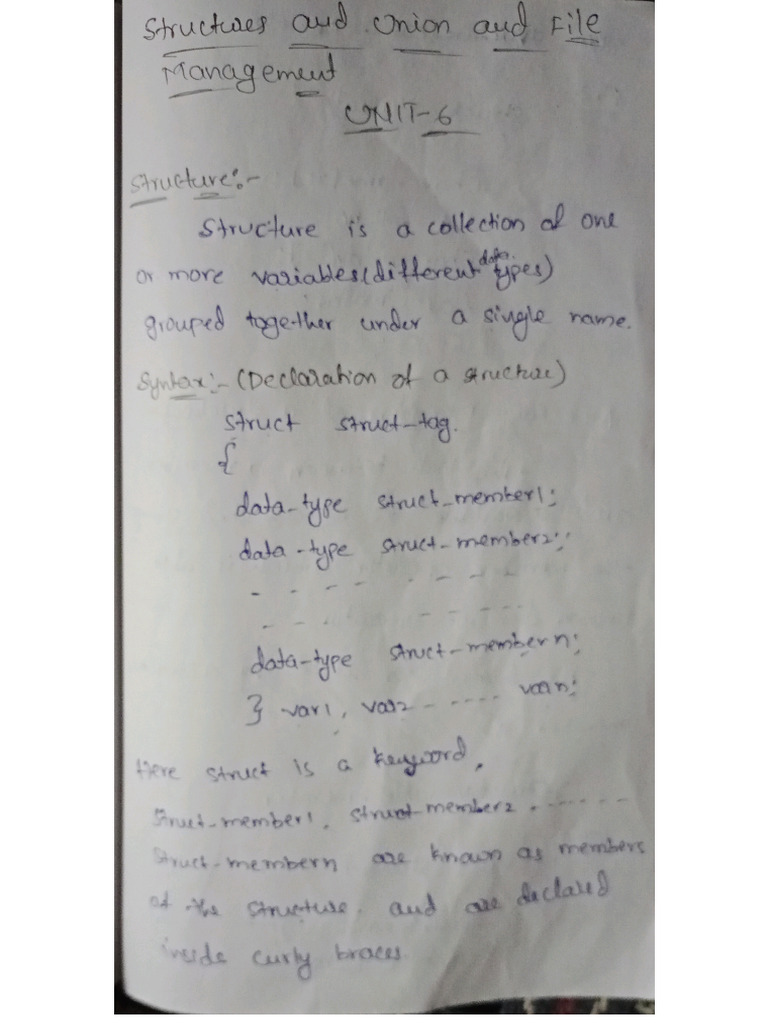 Structures and Union and File
Management
UNIT-6
Structure:-
Structure is a collection of one
or more variables(different data types)
grouped together under a single name.
Syntax:- (Declaration of a structure)
struct struct-tag.
{
data-type struct-member1;
data-type struct-member2;
- - - - - - - -
- - - - - - - -
data-type struct-member n;
} var1, var2 - ---- varn;
Here struct is a keyword,
struct-member1, struct-member2, ------
struct-membern are known as members
of the structure. and are declared
inside curly braces.